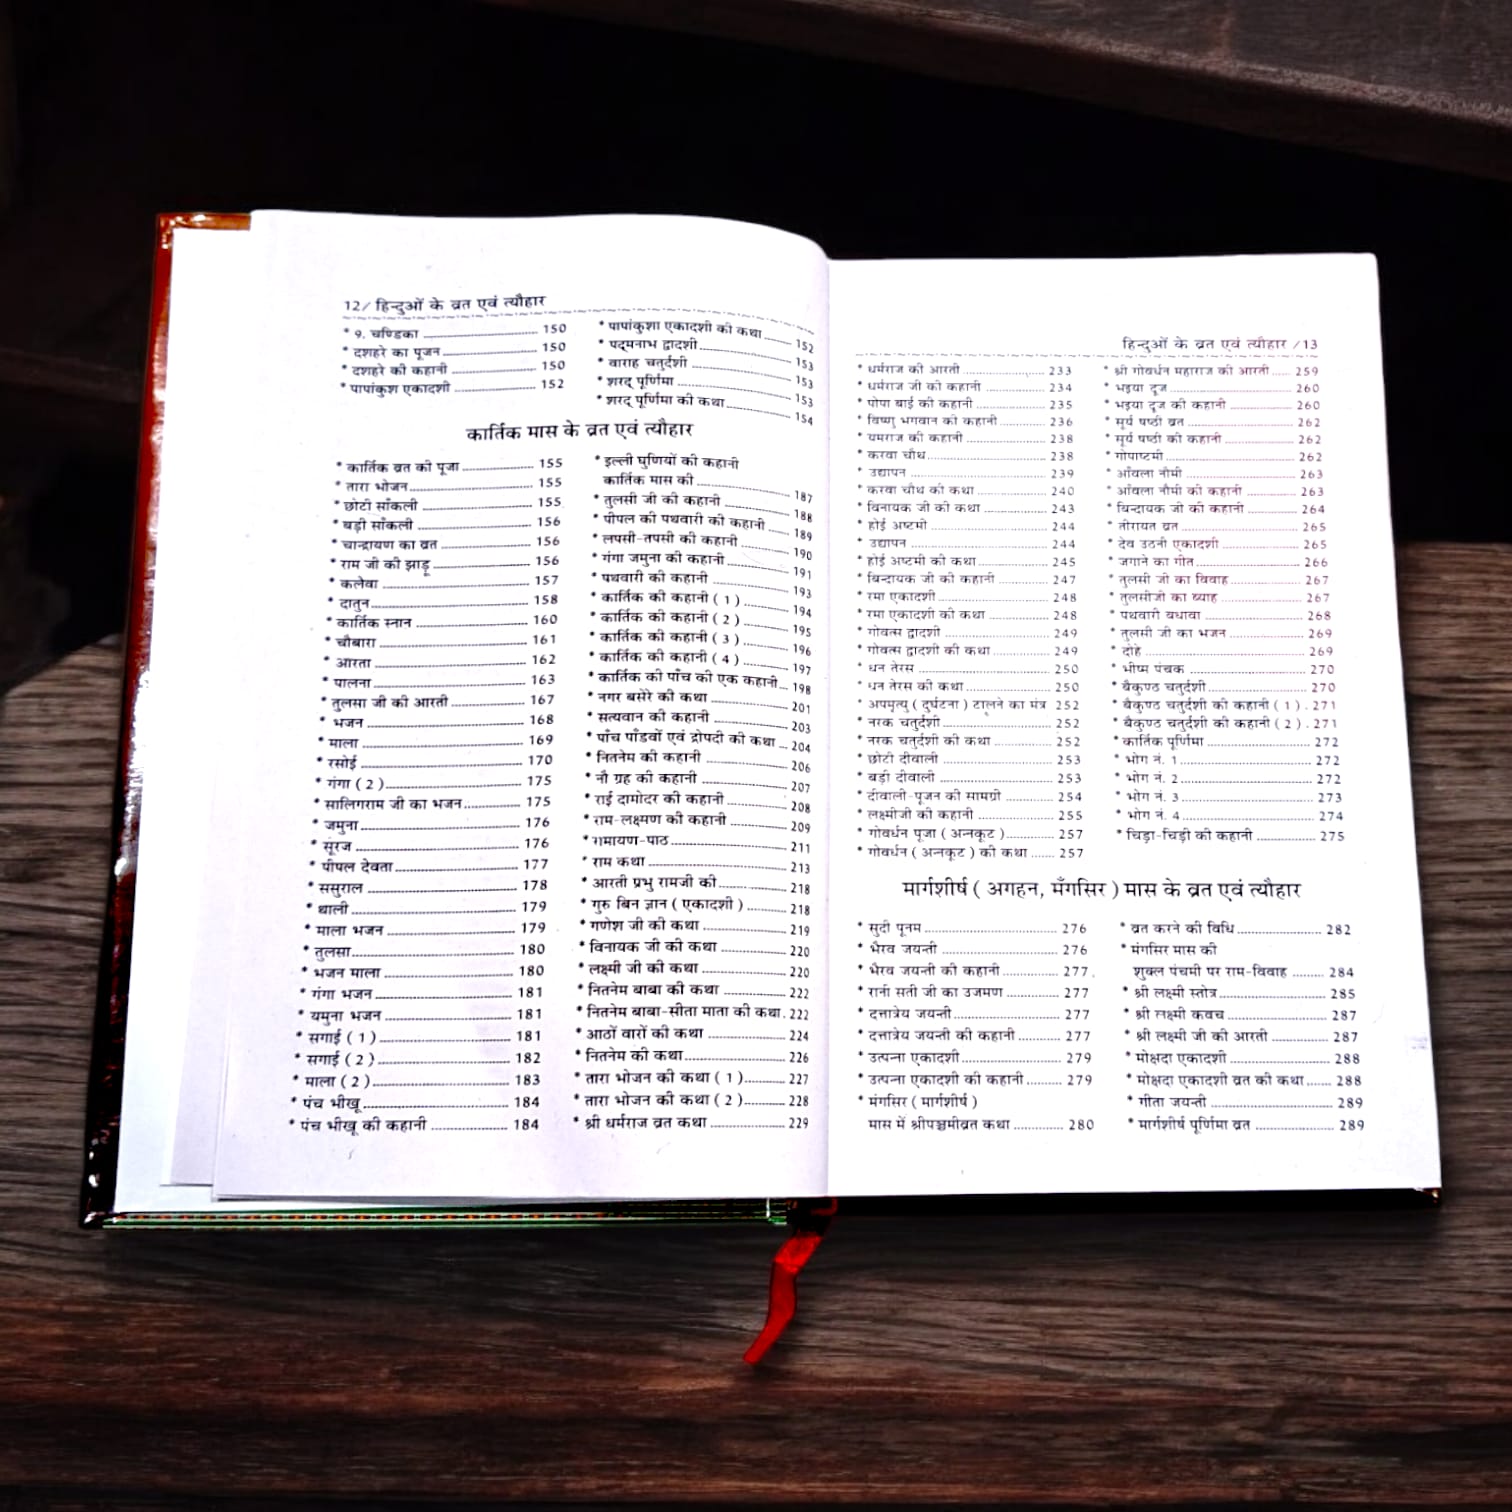 12/ हिन्दुओं के व्रत एवं त्यौहार
* ९. चण्डिका ........ 150
* दशहरे का पूजन ........ 150
* दशहरे की कहानी ........ 150
* पापांकुश एकादशी ........ 152
* पापांकुशा एकादशी की कथा ........ 152
* पद्मनाभ द्वादशी ........ 153
* वाराह चतुर्दशी ........ 153
* शरद् पूर्णिमा ........ 153
* शरद् पूर्णिमा की कथा ........ 154
कार्तिक मास के व्रत एवं त्यौहार
* कार्तिक व्रत की पूजा ........ 155
* तारा भोजन ........ 155
* छोटी साँकली ........ 155
* बड़ी साँकली ........ 156
* चान्द्रायण का व्रत ........ 156
* राम जी की झाड़ू ........ 156
* कलेवा ........ 157
* दातुन ........ 158
* कार्तिक स्नान ........ 160
* चौबारा ........ 161
* आरता ........ 162
* पालना ........ 163
* तुलसा जी की आरती ........ 167
* भजन ........ 168
* माला ........ 169
* रसोई ........ 170
* गंगा ( 2 ) ........ 175
* सालिगराम जी का भजन ........ 175
* जमुना ........ 176
* सूरज ........ 176
* पीपल देवता ........ 177
* ससुराल ........ 178
* थाली ........ 179
* माला भजन ........ 179
* तुलसा ........ 180
* भजन माला ........ 180
* गंगा भजन ........ 181
* यमुना भजन ........ 181
* सगाई ( 1 ) ........ 181
* सगाई ( 2 ) ........ 182
* माला ( 2 ) ........ 183
* पंच भीखू ........ 184
* पंच भीखू की कहानी ........ 184
* इल्ली घुणियों की कहानी
कार्तिक मास की ........ 187
* तुलसी जी की कहानी ........ 188
* पीपल की पथवारी की कहानी ........ 189
* लपसी-तपसी की कहानी ........ 190
* गंगा जमुना की कहानी ........ 191
* पथवारी की कहानी ........ 193
* कार्तिक की कहानी ( 1 ) ........ 194
* कार्तिक की कहानी ( 2 ) ........ 195
* कार्तिक की कहानी ( 3 ) ........ 196
* कार्तिक की कहानी ( 4 ) ........ 197
* कार्तिक की पाँच की एक कहानी ........ 198
* नगर बसेरे की कथा ........ 201
* सत्यवान की कहानी ........ 203
* पाँच पाँडवों एवं द्रोपदी की कथा ........ 204
* नितनेम की कहानी ........ 206
* नौ ग्रह की कहानी ........ 207
* राई दामोदर की कहानी ........ 208
* राम-लक्ष्मण की कहानी ........ 209
* रामायण-पाठ ........ 211
* राम कथा ........ 213
* आरती प्रभु रामजी की ........ 218
* गुरु बिन ज्ञान ( एकादशी ) ........ 218
* गणेश जी की कथा ........ 219
* विनायक जी की कथा ........ 220
* लक्ष्मी जी की कथा ........ 220
* नितनेम बाबा की कथा ........ 222
* नितनेम बाबा-सीता माता की कथा . 222
* आठों वारों की कथा ........ 224
* नितनेम की कथा ........ 226
* तारा भोजन की कथा ( 1 ) ........ 227
* तारा भोजन की कथा ( 2 ) ........ 228
* श्री धर्मराज व्रत कथा ........ 229
हिन्दुओं के व्रत एवं त्यौहार /13
* धर्मराज की आरती ........ 233
* धर्मराज जी की कहानी ........ 234
* पोपा बाई की कहानी ........ 235
* विष्णु भगवान की कहानी ........ 236
* यमराज की कहानी ........ 238
* करवा चौथ ........ 238
* उद्यापन ........ 239
* करवा चौथ की कथा ........ 240
* विनायक जी की कथा ........ 243
* होई अष्टमी ........ 244
* उद्यापन ........ 244
* होई अष्टमी की कथा ........ 245
* बिन्दायक जी की कहानी ........ 247
* रमा एकादशी ........ 248
* रमा एकादशी की कथा ........ 248
* गोवत्स द्वादशी ........ 249
* गोवत्स द्वादशी की कथा ........ 249
* धन तेरस ........ 250
* धन तेरस की कथा ........ 250
* अपमृत्यु ( दुर्घटना ) टालने का मंत्र 252
* नरक चतुर्दशी ........ 252
* नरक चतुर्दशी की कथा ........ 252
* छोटी दीवाली ........ 253
* बड़ी दीवाली ........ 253
* दीवाली-पूजन की सामग्री ........ 254
* लक्ष्मीजी की कहानी ........ 255
* गोवर्धन पूजा ( अन्नकूट ) ........ 257
* गोवर्धन ( अन्नकूट ) की कथा ........ 257
* श्री गोवर्धन महाराज की आरती ........ 259
* भइया दूज ........ 260
* भइया दूज की कहानी ........ 260
* सूर्य षष्ठी व्रत ........ 262
* सूर्य षष्ठी की कहानी ........ 262
* गोपाष्टमी ........ 262
* आँवला नौमी ........ 263
* आँवला नौमी की कहानी ........ 263
* बिन्दायक जी की कहानी ........ 264
* तीरायत व्रत ........ 265
* देव उठनी एकादशी ........ 265
* जगाने का गीत ........ 266
* तुलसी जी का विवाह ........ 267
* तुलसीजी का ब्याह ........ 267
* पथवारी बधावा ........ 268
* तुलसी जी का भजन ........ 269
* दोहे ........ 269
* भीष्म पंचक ........ 270
* बैकुण्ठ चतुर्दशी ........ 270
* बैकुण्ठ चतुर्दशी की कहानी ( 1 ) . 271
* बैकुण्ठ चतुर्दशी की कहानी ( 2 ) . 271
* कार्तिक पूर्णिमा ........ 272
* भोग नं. 1 ........ 272
* भोग नं. 2 ........ 272
* भोग नं. 3 ........ 273
* भोग नं. 4 ........ 274
* चिड़ा-चिड़ी की कहानी ........ 275
मार्गशीर्ष ( अगहन, मँगसिर ) मास के व्रत एवं त्यौहार
* सुदी पूनम ........ 276
* भैरव जयन्ती ........ 276
* भैरव जयन्ती की कहानी ........ 277
* रानी सती जी का उजमण ........ 277
* दत्तात्रेय जयन्ती ........ 277
* दत्तात्रेय जयन्ती की कहानी ........ 277
* उत्पन्ना एकादशी ........ 279
* उत्पन्ना एकादशी की कहानी ........ 279
* मंगसिर ( मार्गशीर्ष )
मास में श्रीपञ्चमीव्रत कथा ........ 280
* व्रत करने की विधि ........ 282
* मंगसिर मास की
शुक्ल पंचमी पर राम-विवाह ........ 284
* श्री लक्ष्मी स्तोत्र ........ 285
* श्री लक्ष्मी कवच ........ 287
* श्री लक्ष्मी जी की आरती ........ 287
* मोक्षदा एकादशी ........ 288
* मोक्षदा एकादशी व्रत की कथा ........ 288
* गीता जयन्ती ........ 289
* मार्गशीर्ष पूर्णिमा व्रत ........ 289